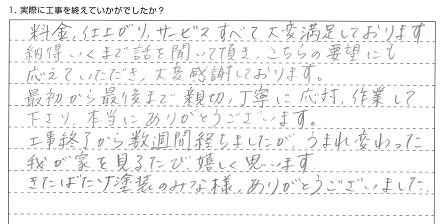 1. 実際に工事を終えていかがでしたか？
料金、仕上がり、サービスすべて大変満足しております
納得いくまで話を聞いて頂き、こちらの要望にも
応えていただき、大変感謝しております。
最初から最後まで親切、丁寧に応対、作業して
下さり、本当にありがとうございます。
工事終了から数週間経ちましたが、うまれ変わった
我が家を見るたび、嬉しく思います
きたばたけ塗装のみな様、ありがとうございました